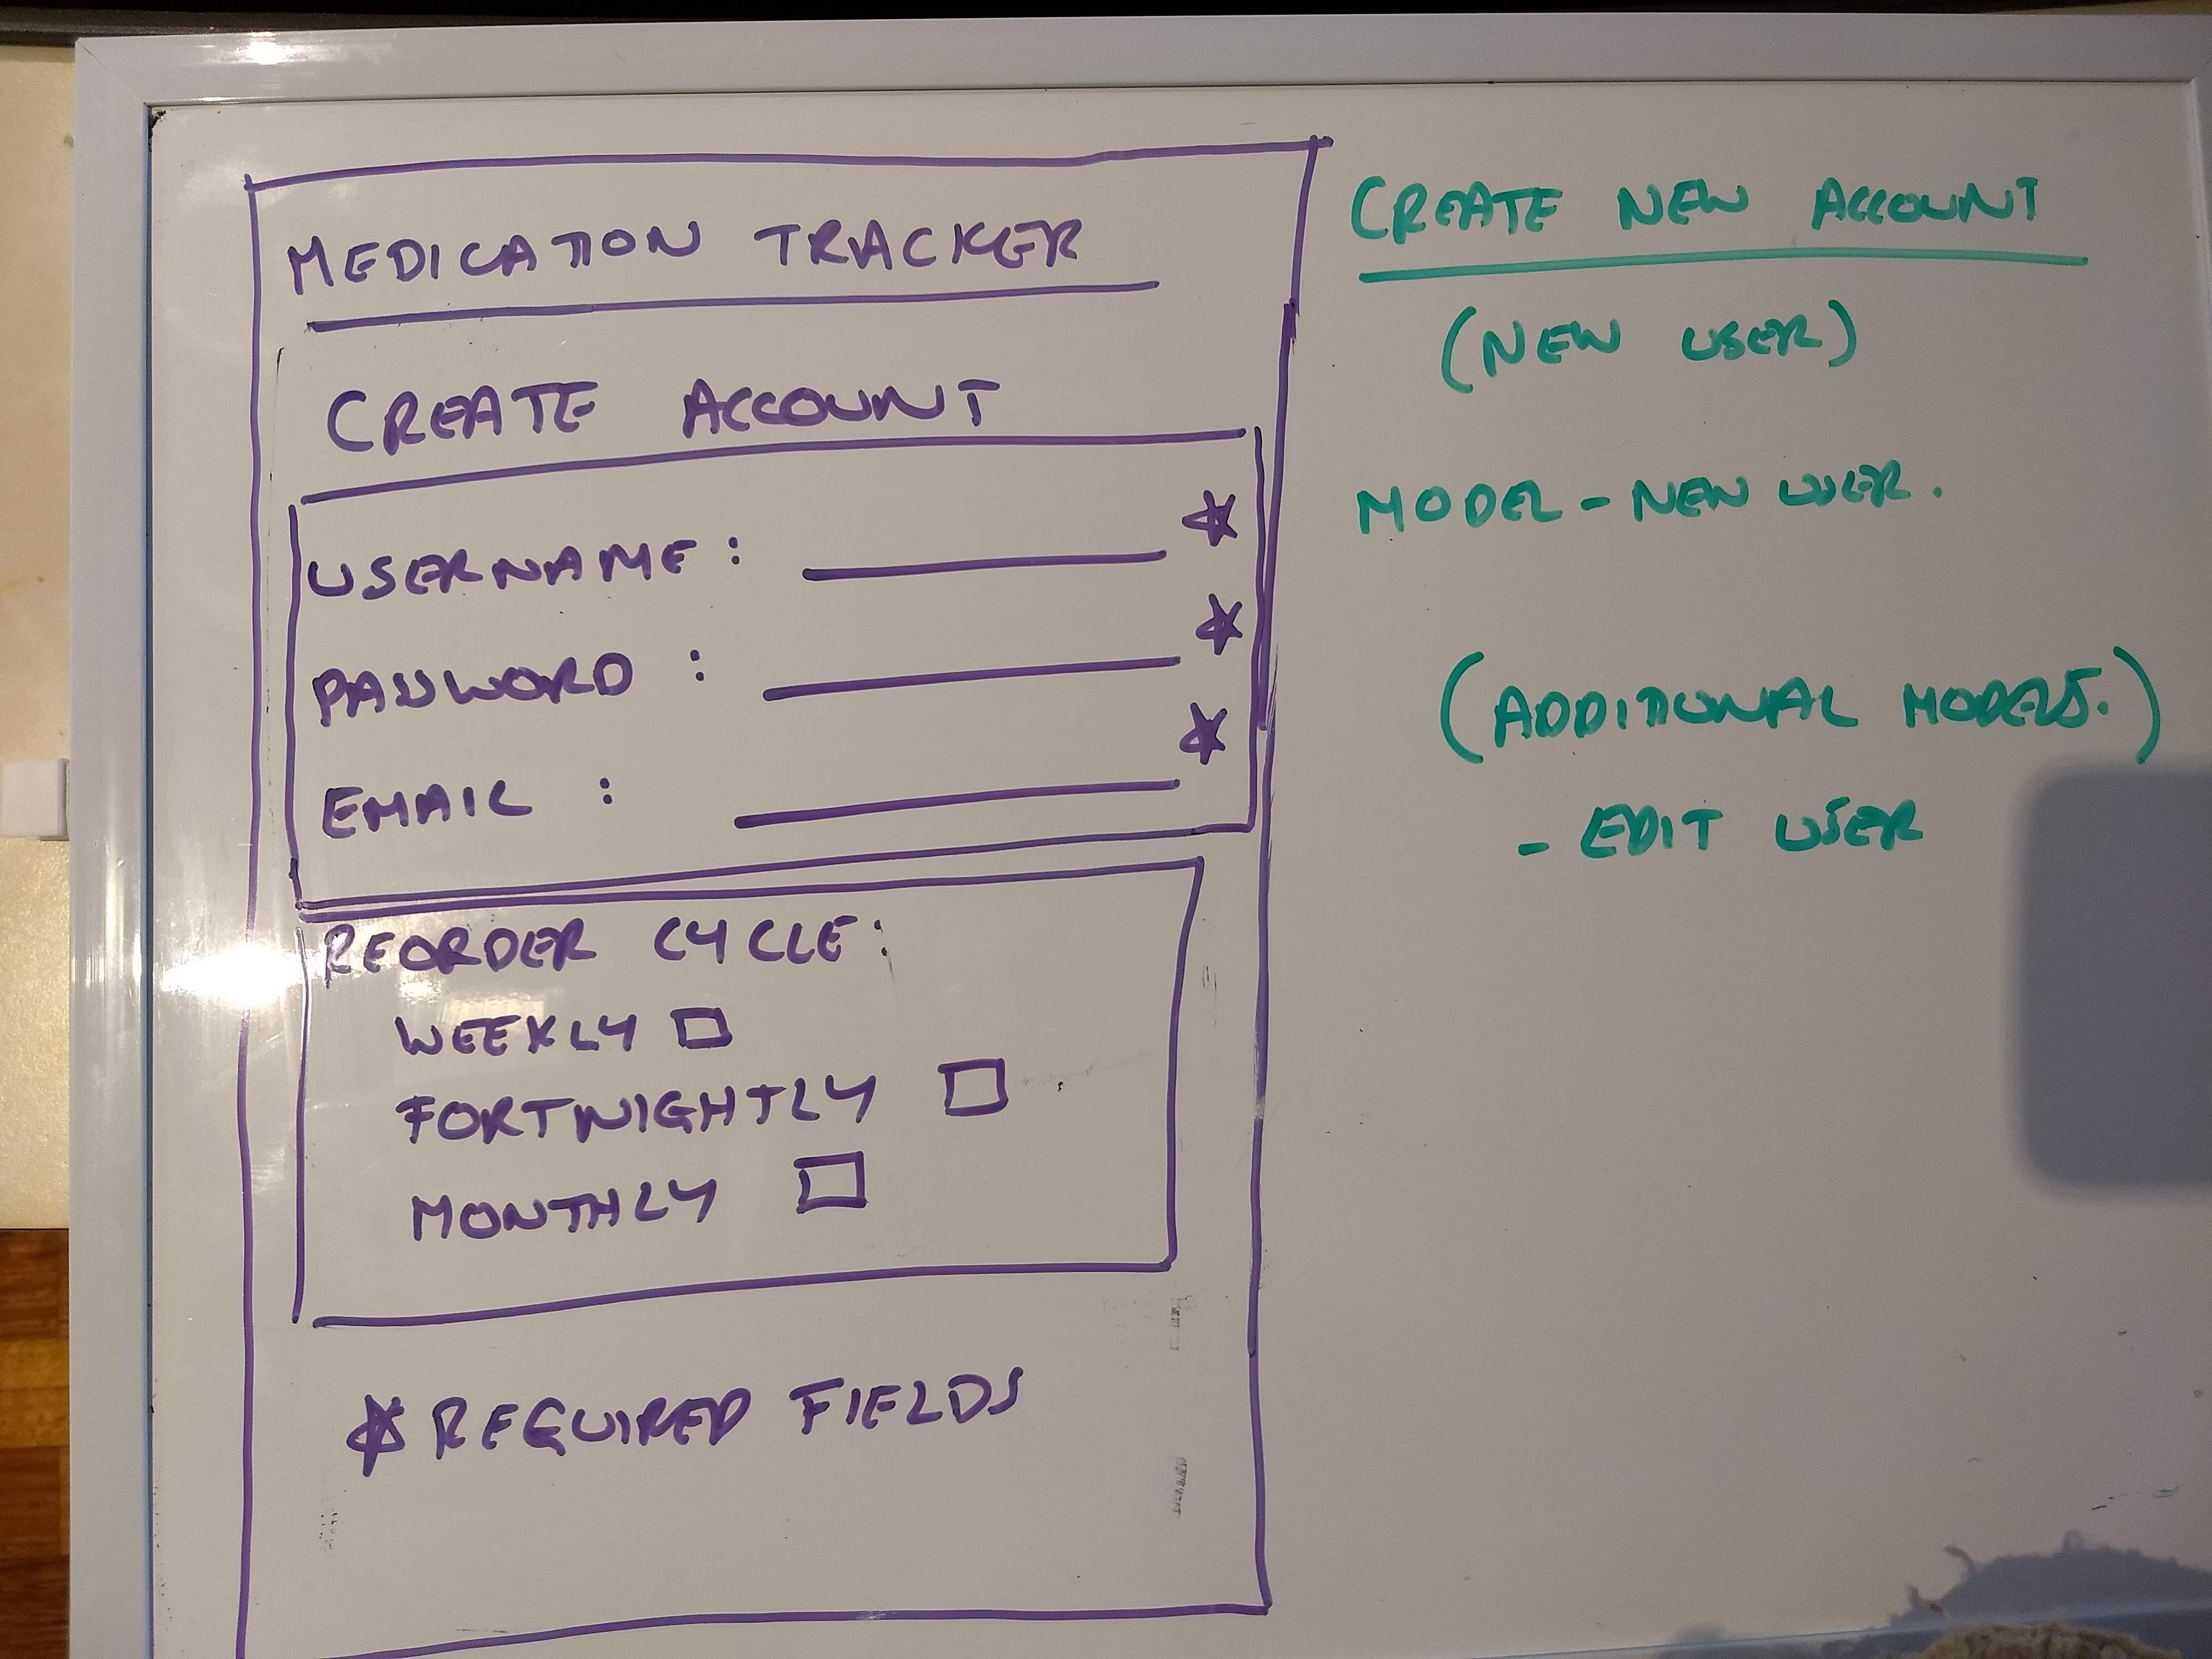 MEDICATION TRACKER
CREATE ACCOUNT
USERNAME : *
PASSWORD : *
EMAIL : *
REORDER CYCLE:
WEEKLY
FORTNIGHTLY
MONTHLY
* REQUIRED FIELDS
CREATE NEW ACCOUNT
(NEW USER)
MODEL - NEW USER.
(ADDITIONAL MODELS.)
- EDIT USER